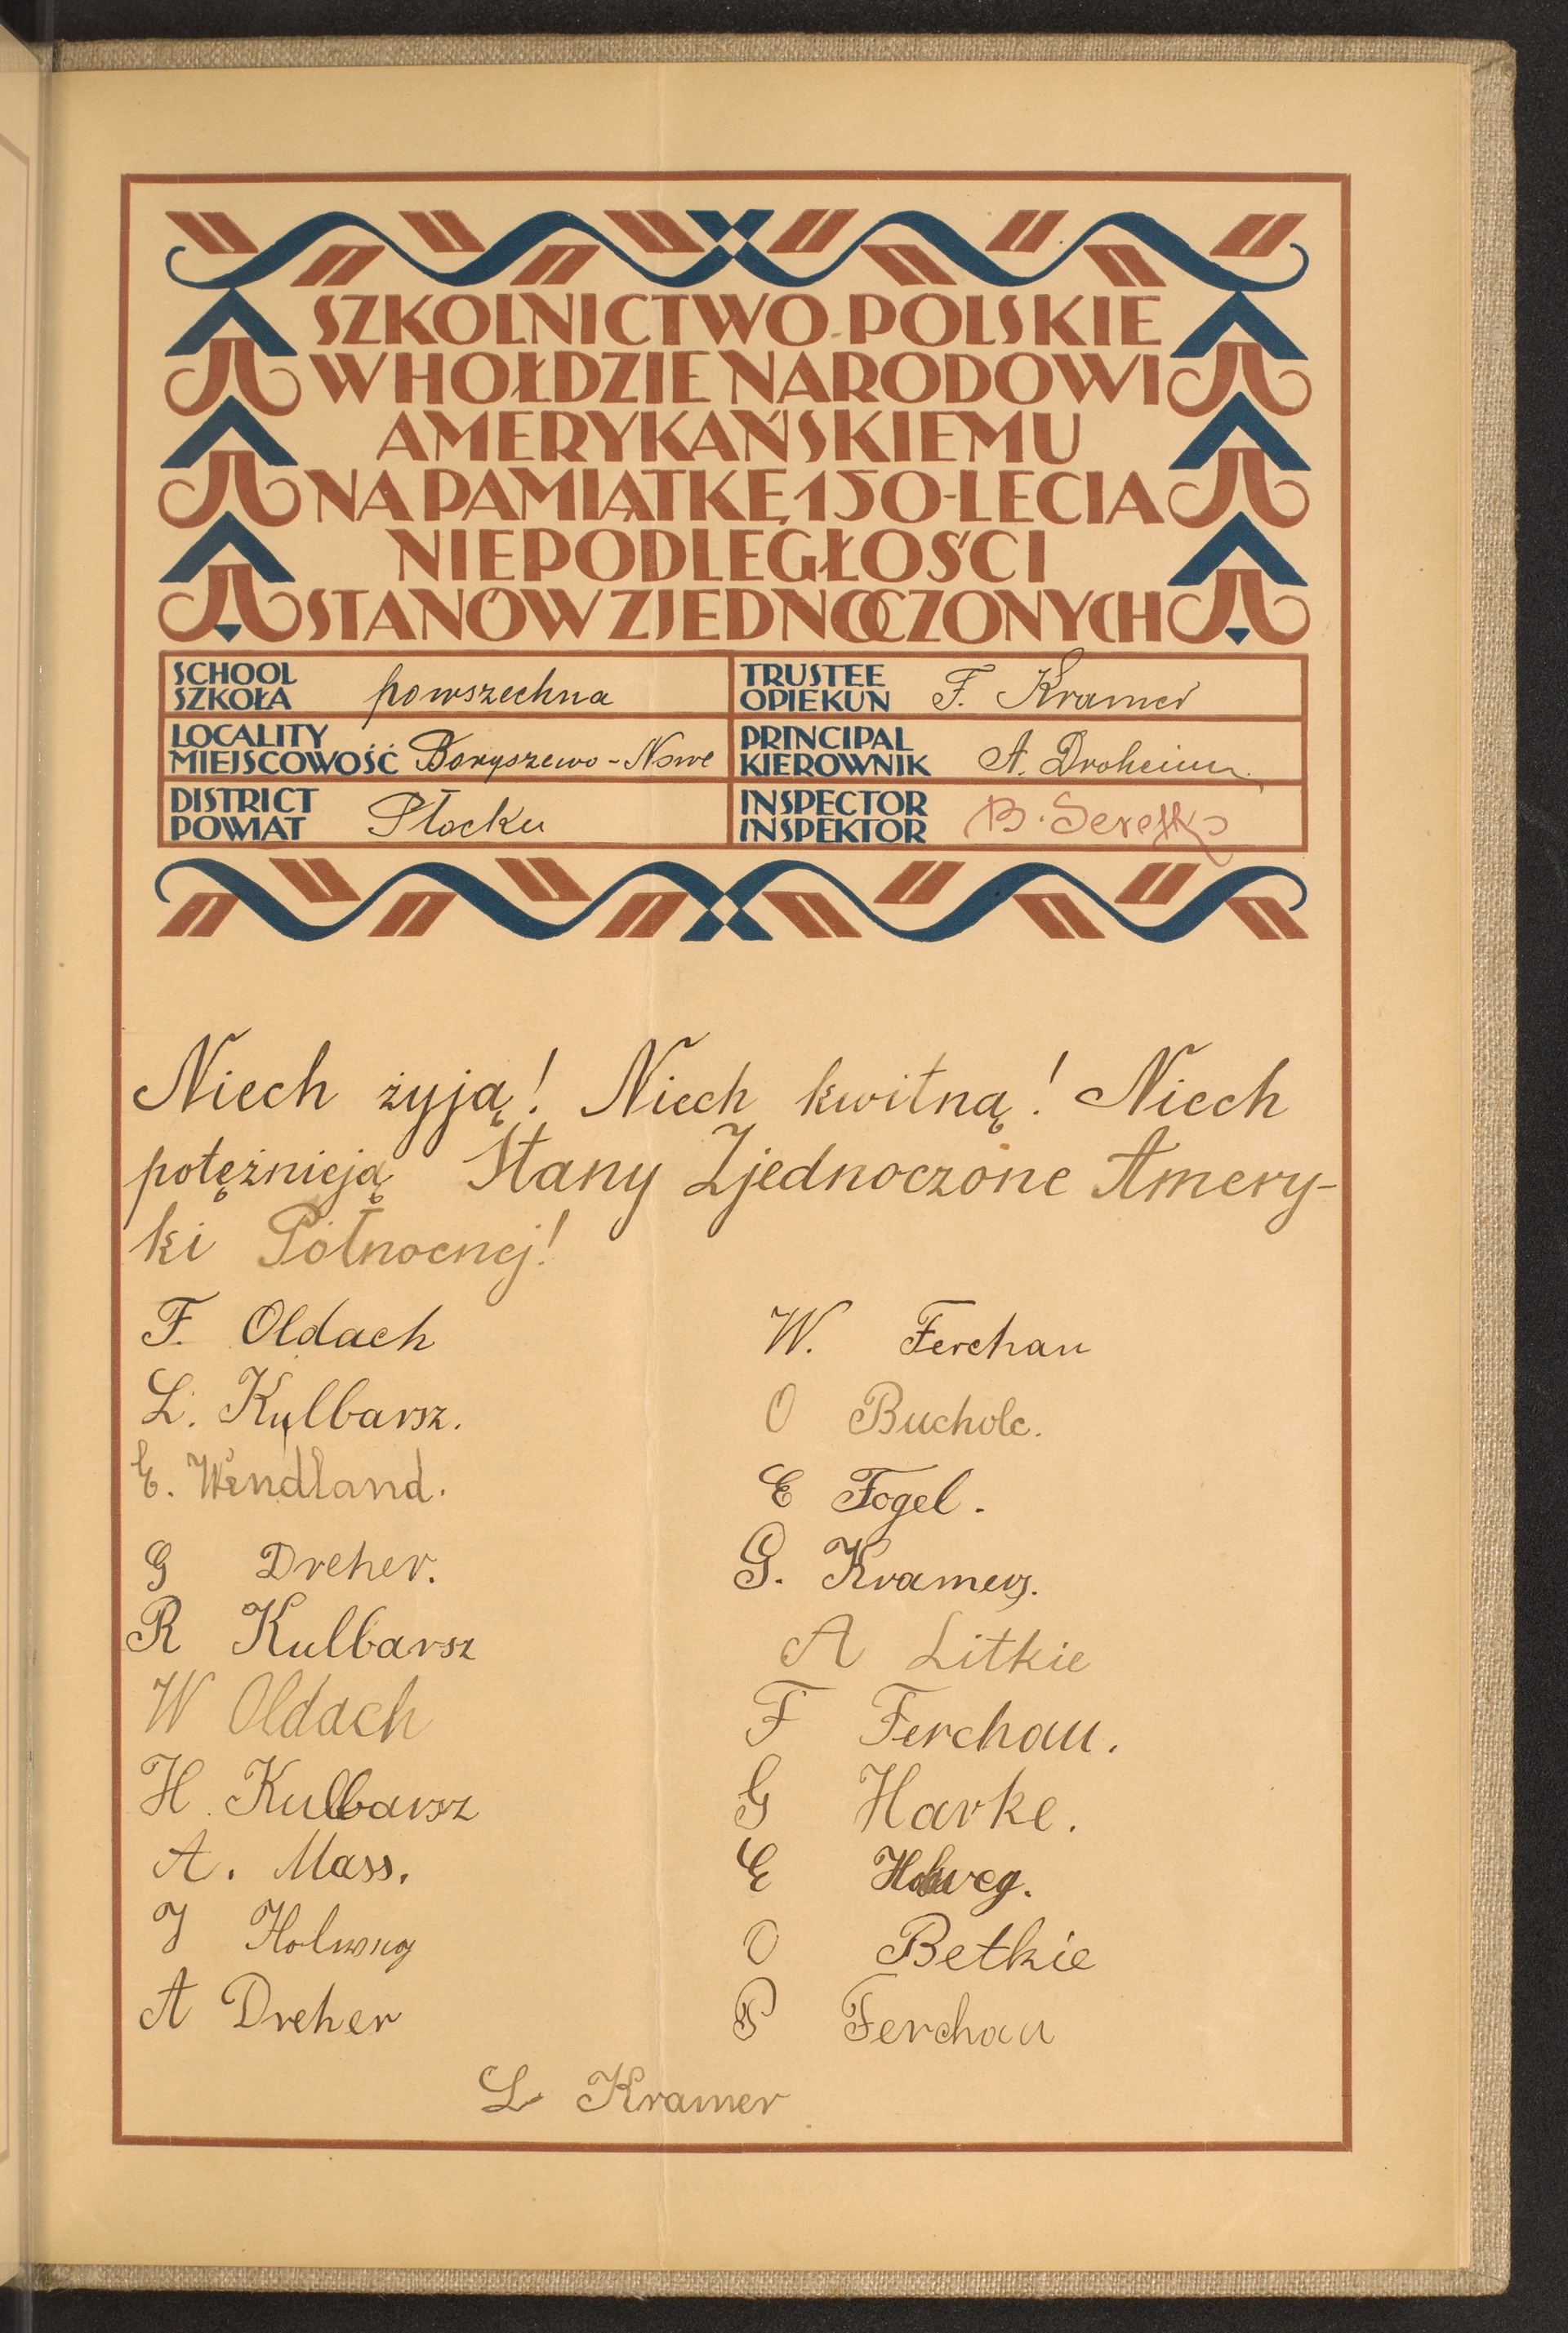 SZKOLNICTWO POLSKIE
W HOŁDZIE NARODOWI
AMERYKAŃSKIEMU
NA PAMIĄTKĘ 150-LECIA
NIEPODLEGŁOŚCI
STANÓW ZJEDNOCZONYCH
SCHOOL
SZKOŁA powszechna
TRUSTEE
OPIEKUN F. Kramer
LOCALITY
MIEJSCOWOŚĆ Boryszewo-Nowe
PRINCIPAL
KIEROWNIK A. Droheim
DISTRICT
POWIAT Płocku
INSPECTOR
INSPEKTOR B.
Niech żyją! Niech kwitną! Niech
potężnieją Stany Zjednoczone Amery-
ki Północnej!
F. Oldach
L. Kulbarsz.
E. Wendland.
G Dreher.
R Kulbarsz
W Oldach
H. Kulbarsz
A. Mass.
J Holweg
A Dreher
W. Ferchau
O Bucholc.
E Fogel.
G. Kramer.
A Litkie
F Ferchau.
G Harke.
E Holweg.
O Betkie
P Ferchau
L Kramer